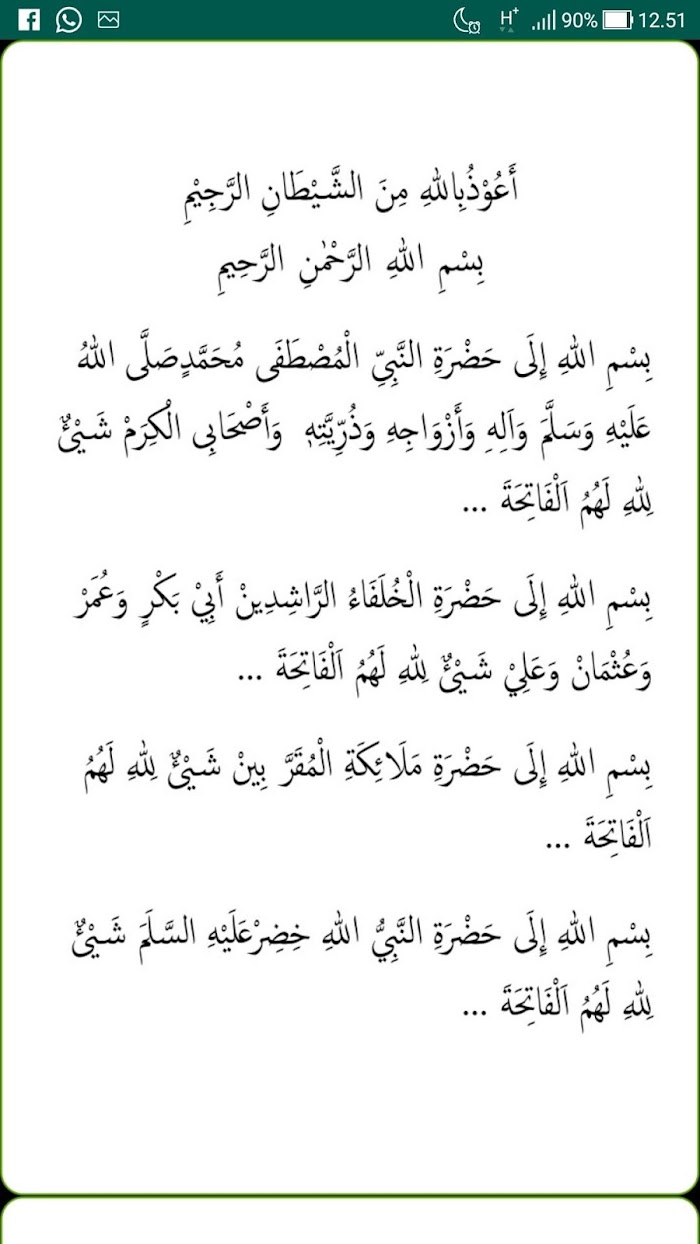 90% 12.51
أَعُوْذُبِاللهِ مِنَ الشَّيْطَانِ الرَّجِيْمِ
بِسْمِ اللهِ الرَّحْمٰنِ الرَّحِيمِ
بِسْمِ اللهِ إِلَى حَضْرَةِ النَّبِيِّ الْمُصْطَفَى مُحَمَّدٍصَلَّى اللهُ
عَلَيْهِ وَسَلَّمَ وَآلِهِ وَأَزْوَاجِهِ وَذُرِّيَّتِهِ وَأَصْحَابِى الْكِرَمْ شَيْئٌ
لِلهِ لَهُمُ اَلْفَاتِحَةَ ...
بِسْمِ اللهِ إِلَى حَضْرَةِ الْخُلَفَاءُ الرَّاشِدِينْ أَبِيْ بَكْرٍ وَعُمَرْ
وَعُثْمَانْ وَعَلِيْ شَيْئٌ لِلهِ لَهُمُ اَلْفَاتِحَةَ ...
بِسْمِ اللهِ إِلَى حَضْرَةِ مَلَائِكَةِ الْمُقَرَّ بِينْ شَيْئٌ لِلهِ لَهُمُ
اَلْفَاتِحَةَ ...
بِسْمِ اللهِ إِلَى حَضْرَةِ النَّبِيُّ اللهِ خِضِرْعَلَيْهِ السَّلَمَ شَيْئٌ
لِلهِ لَهُمُ اَلْفَاتِحَةَ ...